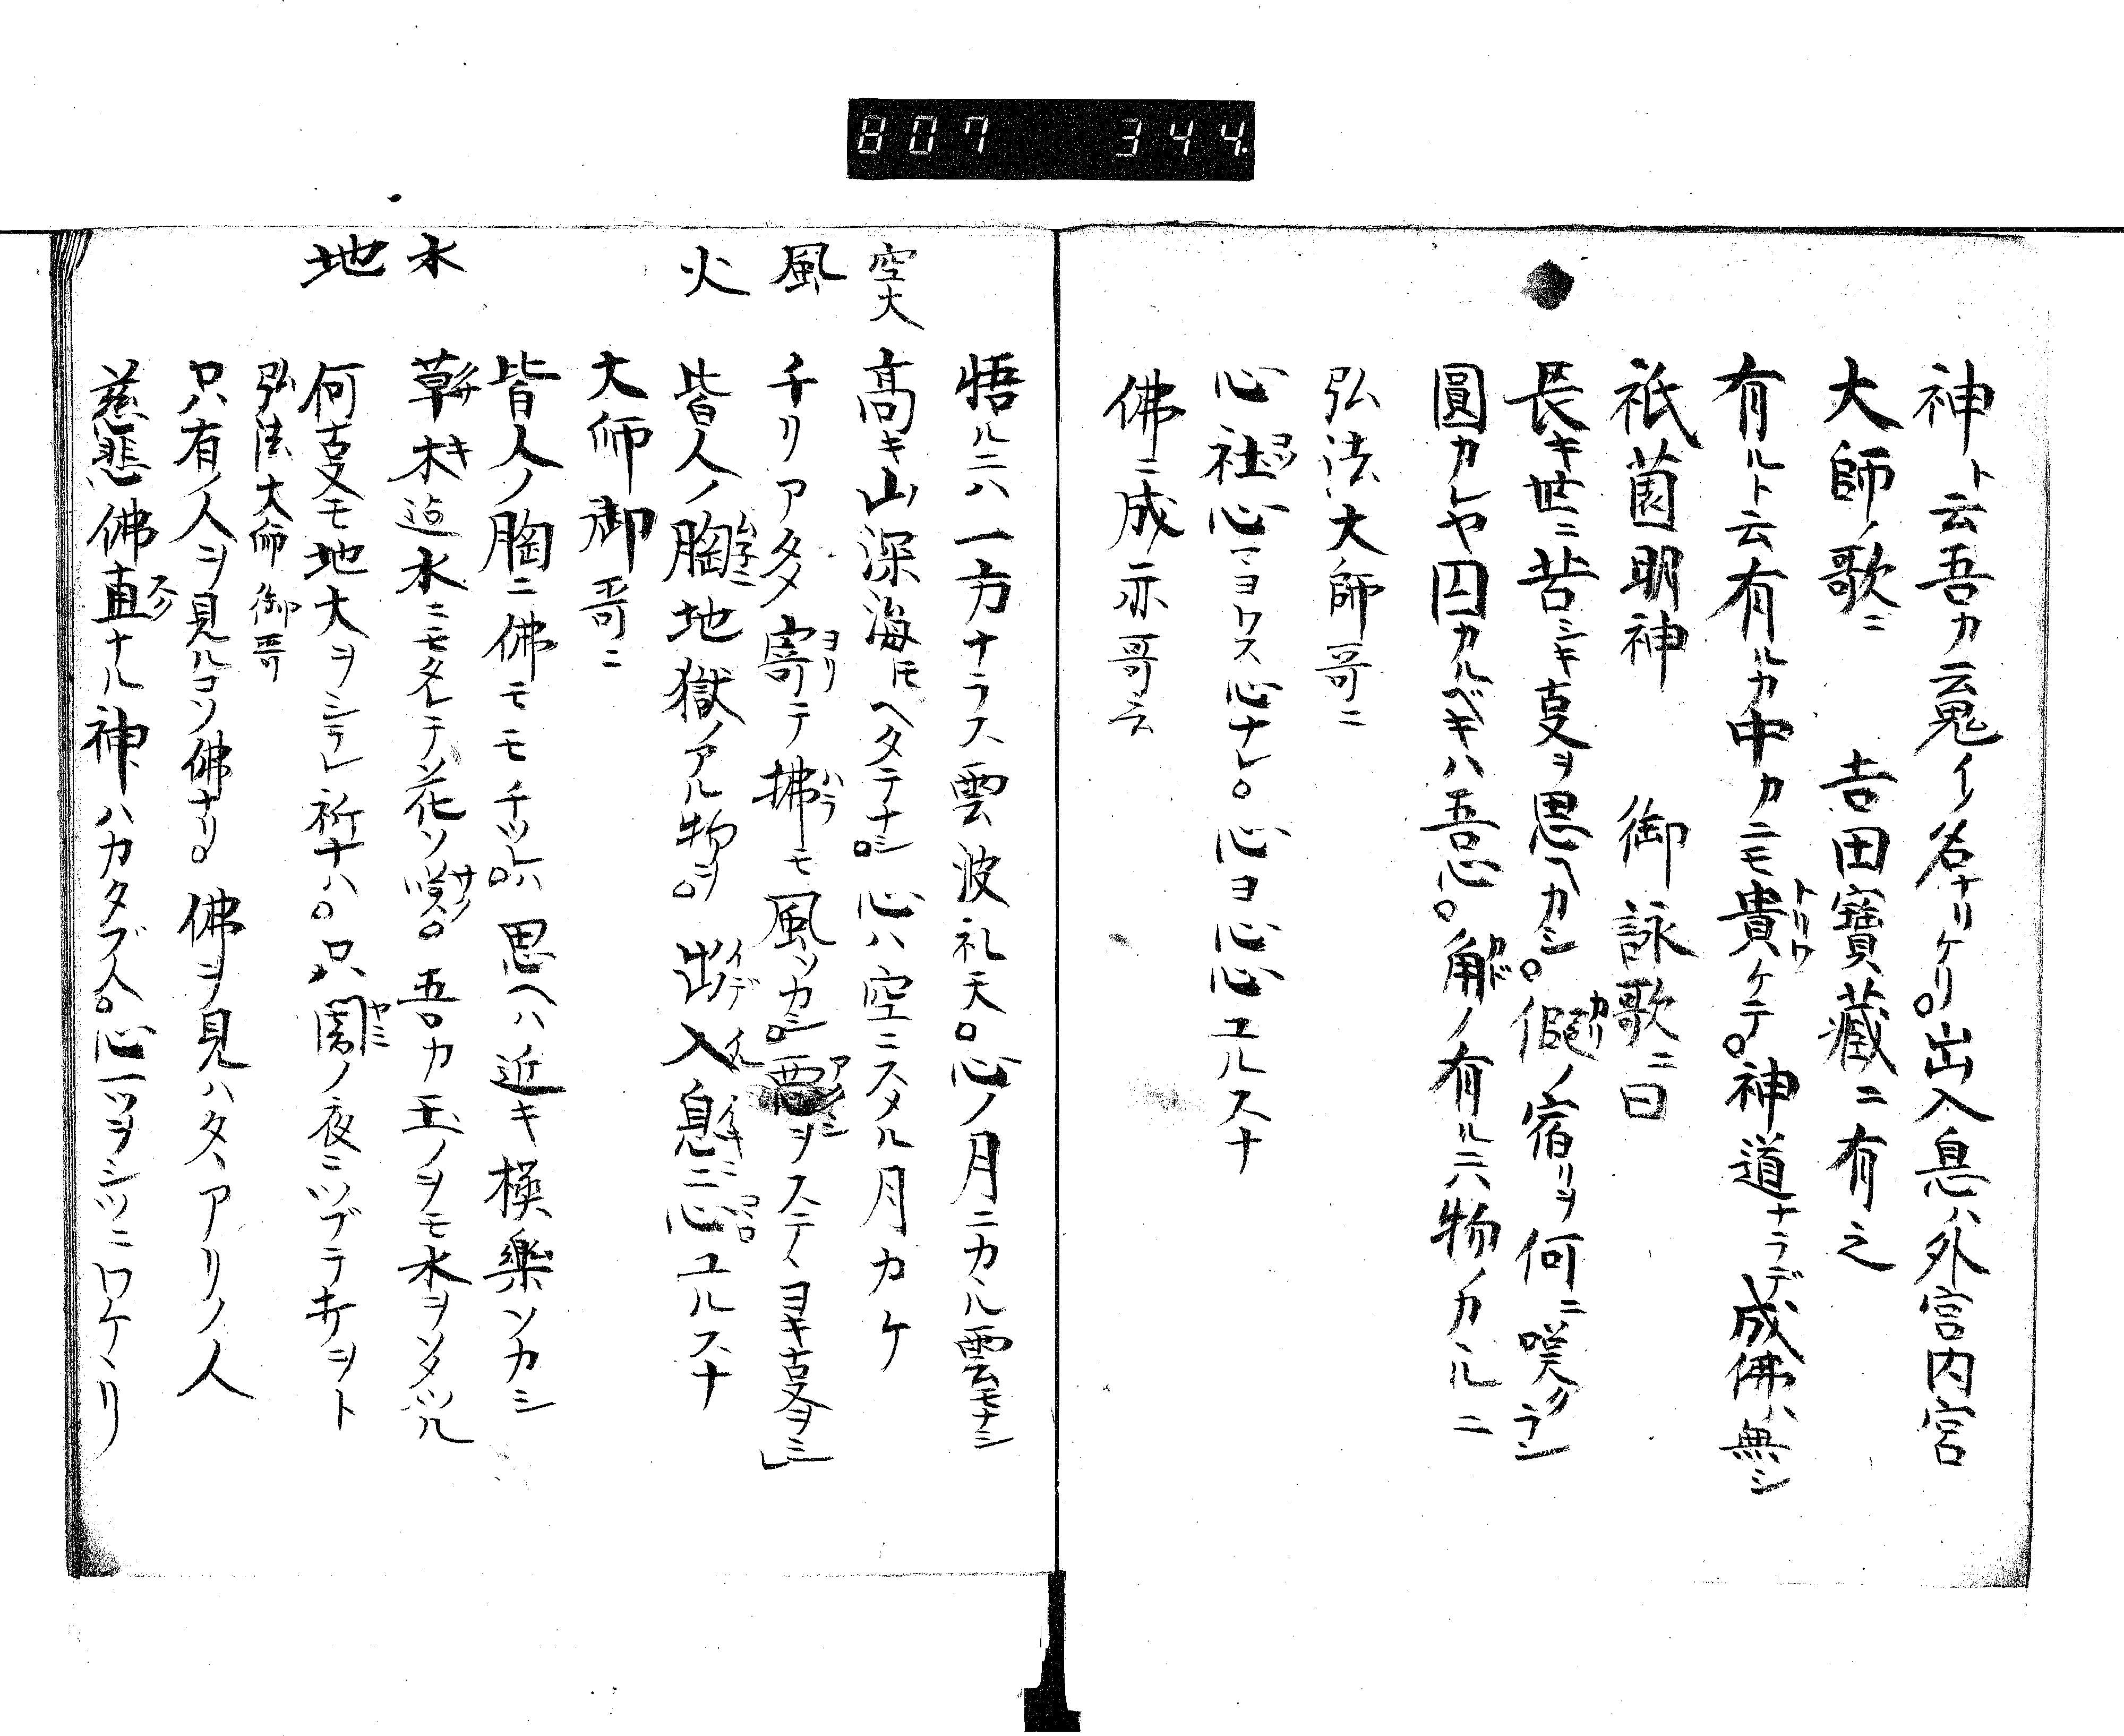 807 344
神ト云吾カ玉鬼イノ名ナリケリ。出入息ハ外宮内宮
大師ノ歌ニ 吉田寳藏ニ有之
有ルト云有ルカ中カニモ貴ケテ。神道ナラデ成佛ハ無シ
祇薗明神 御詠歌ニ曰
長キ世ニ苦シキ叓ヲ思ヘカシ。假ノ宿リヲ何ニ
圓カレヤ囚カルベキハ吾心。角ノ有ルニハ物ノカルニ
弘法大師哥ニ
心社心マヨワス心ナレ。心ヨ心心ユルスナ
佛ニ成ノ示哥云
悟ルニハ一方ナラス雲波礼天。心ノ月ニカル雲モナシ
空大 髙キ山深海モヘタテナシ。心ハ空ニスメル月カケ
風 チリアタ寄テ拂モ風ソカシ。ヲステヽヨキ叓ヲミレ
火 皆人ノ胸地獄ノアル物ヲ。出入息ニ心ユルスナ
大师御哥ニ
皆人ノ胸ニ佛モモチツレハ。思ヘハ近キ極樂ソカシ
水 草木迠水ニモタレテ花ソ咲。吾カ玉ノヲモ水ヲソタツル
地 何叓モ地大ヲシテレ祈ナハ。只闇ノ夜ニツブテ
弘法大师御哥
只有ノ人ヲ見ルコソ佛ナリ。佛ヲ見ハタヽアリノ人
慈悲佛直ナル神ハカタブ人。心一ツヲシツニワケヽリ